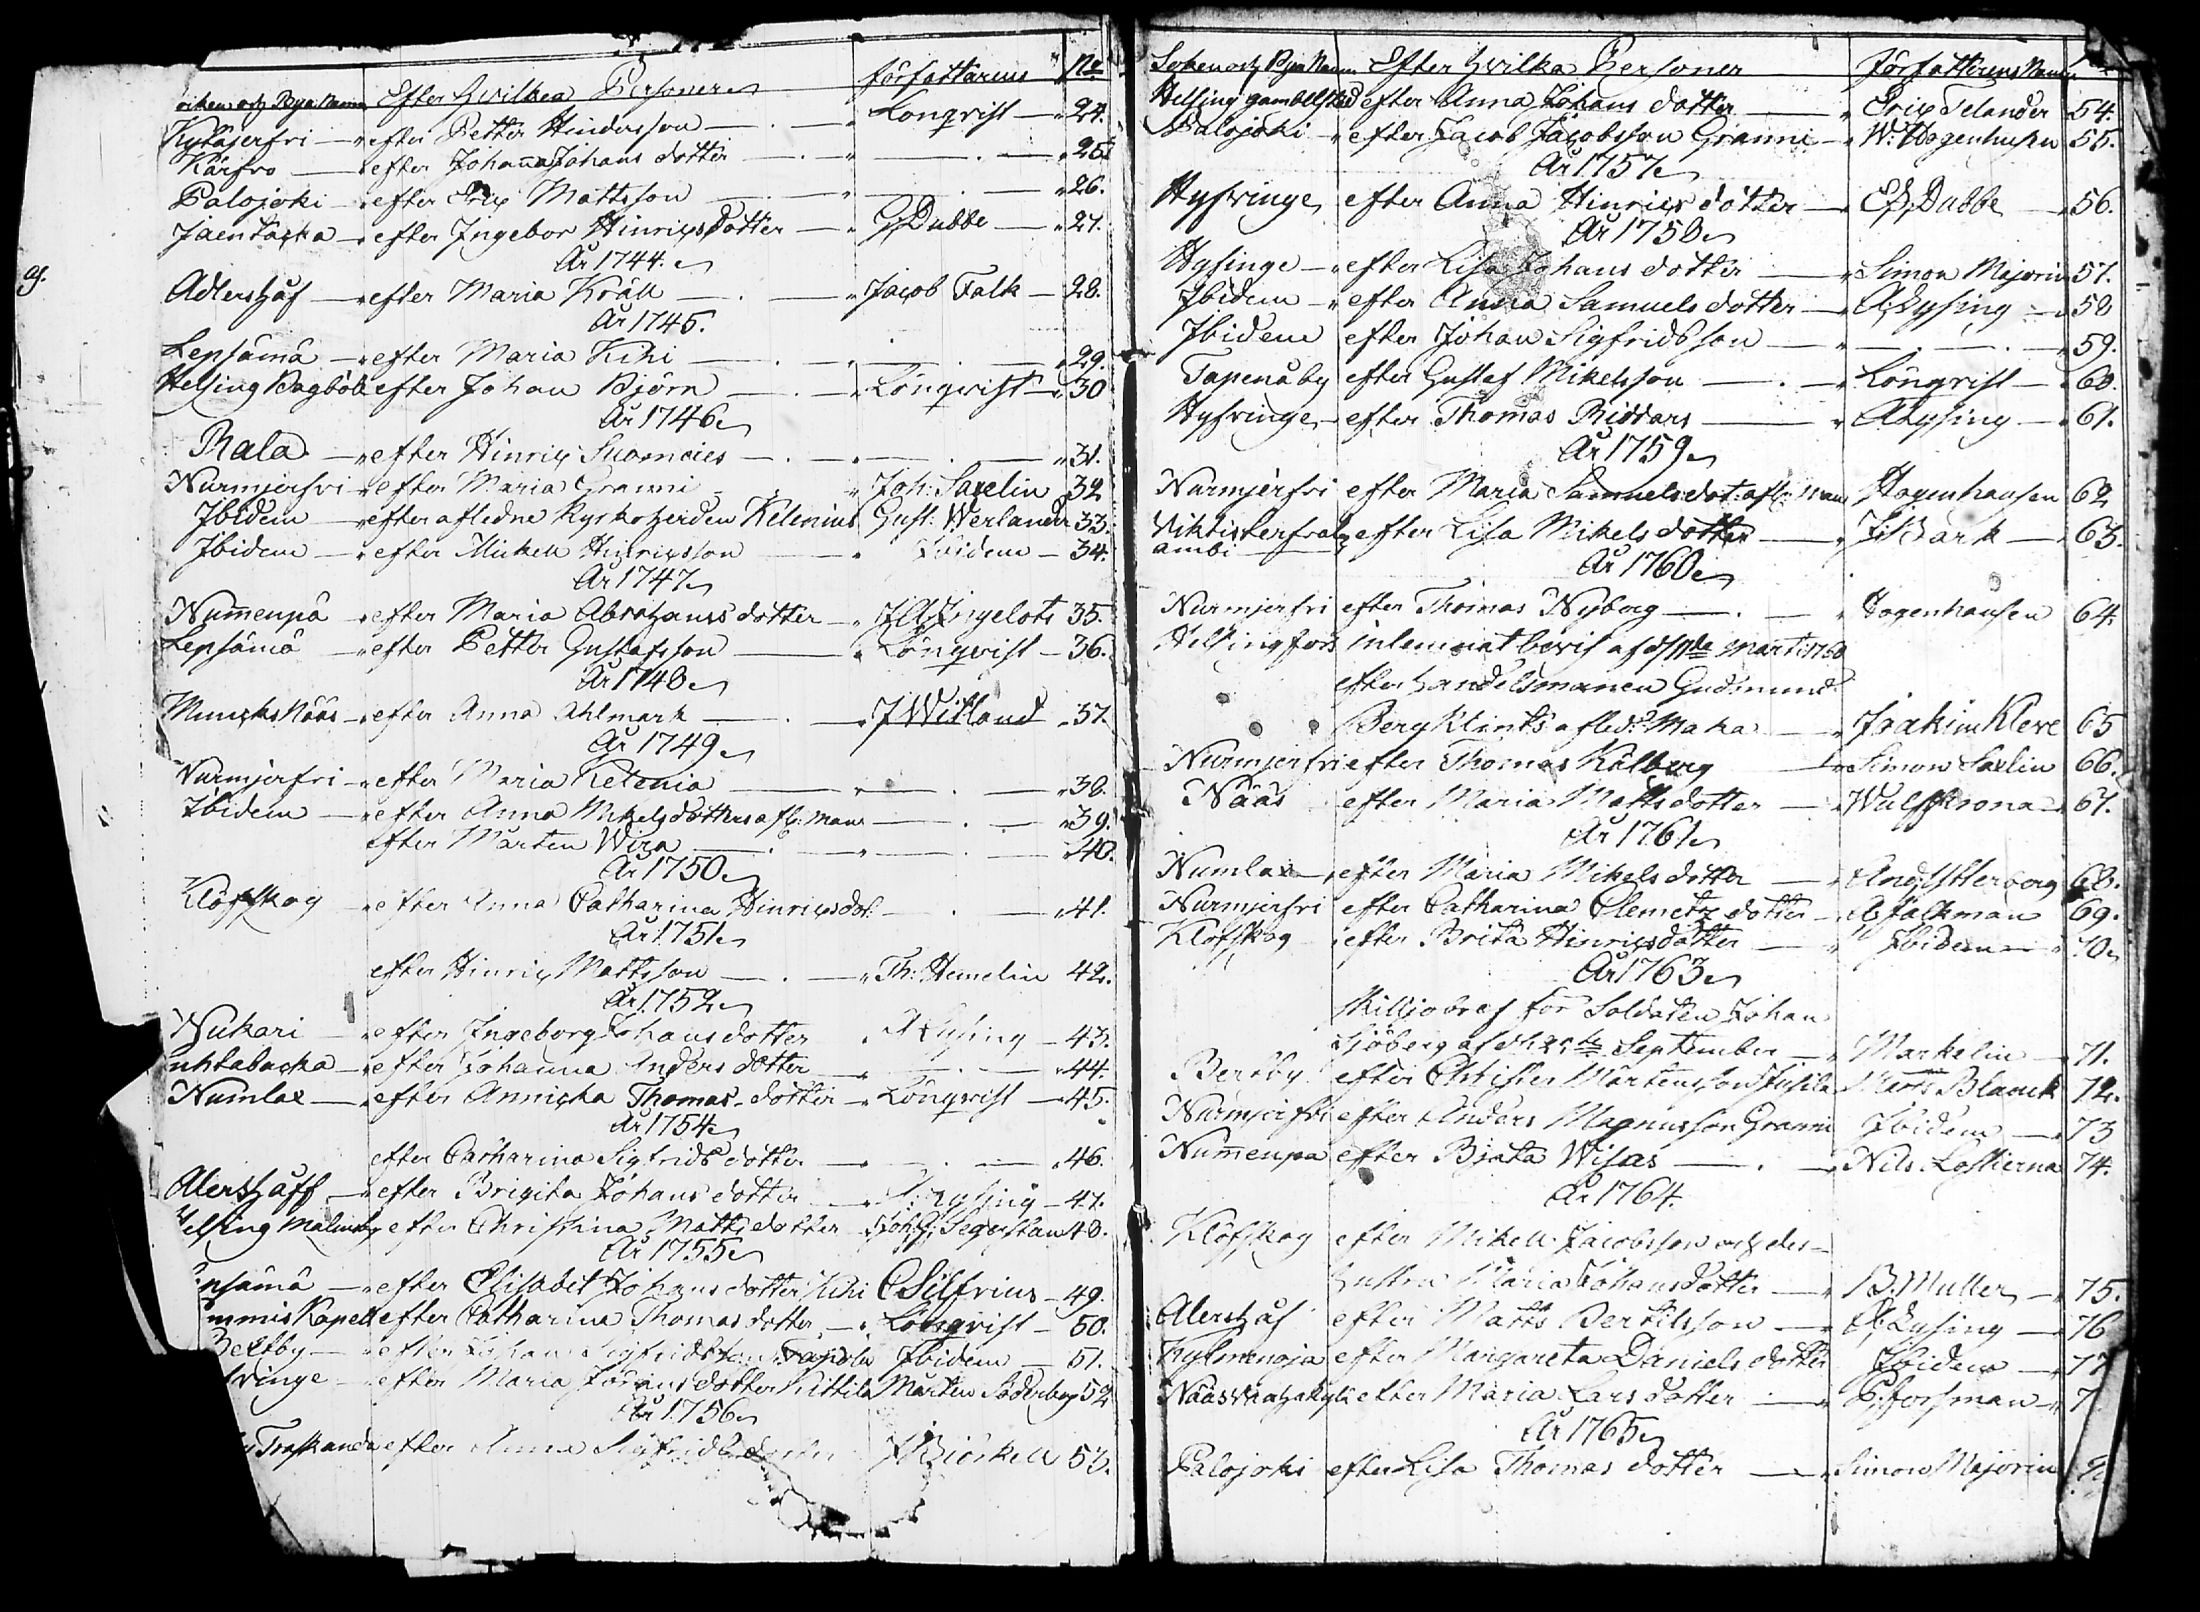 ocken och Bya Namn Efter Hvilka Personer författarens No
Kytäjerfvi — efter Petter Hindersson — Lönqvist — 24.
Kärfvo — efter Johanna Johans dotter — — 25.
Palojoki — efter Erix Mattsson — — 26.
Jaentacka — efter Ingebor Hinrixsdotter — G Dubbe — 27.
År 1744.
Adlershåf — efter Maria Kråll — Jacob Falk — 28.
År 1745.
Lepsämä — efter Maria Kihi — — 29.
Helsing Bagböle efter Johan Björn — Lönqvist — 30
År 1746
Rala — efter Hinrix Suomcies — — 31.
Nurmjerfvi — efter Maria Granni Joh: Saxelin 32
Ibidem — efter afledne Kyrkoherden Kelenius Gust: Werlander 33.
Ibidem — efter Mickell Hinrixsson — Ibidem — 34.
År 1747
Numenpä — efter Maria Abrahams dotter — J A Ingelots 35.
Lepsämä — efter Petter Gustafsson — Lönqvist — 36.
År 1748
Muncks Nääs — efter Anna Ahlmark — J Witland — 37.
År 1749
Nurmjerfvi — efter Maria Ketenia — — 38.
Ibidem — efter Anna Mikelsdotters afl: Man — — 39.
efter Mårten Wira — — 40.
År 1750
Klöfskog — efter Anna Catharina Hinrixsdot: — — 41.
År 1751
efter Hinrix Mattsson — Th: Hemelin 42.
År 1752
Nukari — efter Ingeborg Johansdotter A Lysing — 43.
uhtabacka — efter Johanna Anders dotter — — 44.
Numlax — efter Annicka Thomas dotter — Lönqvist — 45.
År 1754
efter Catharina Sigfrids dotter — — 46.
Alershåff — efter Brigita Johans dotter — Lysing — 47.
Helsing Malmby efter Christina Matts dotter — Joh: G: Segerstam 48.
År 1755
epsämä — efter Elisabet Johans dotter Kihi C Silfrius — 49.
mmis Kapell efter Catharina Thomas dotter — Lönqvist — 50.
Bertby — efter Johan Sigfridsson Tapola Ibidem — 51.
fvinge — efter Maria Johans dotter Kittila Mårten Söderberg 52
År 1756
Träskanda efter Anna Sigfrids dotter J Biörkell 53.
Soken och Bya Namn Efter Hvilka Personer författarens Namn
Helsing gambelstad efter Anna Johans dotter — Erix Telander 54.
Palojoki — efter Jacob Jacobsson Granni — W: Hogenhusen 55.
År 1757
Hyfvinge efter Anna Hinrixs dotter — E G Dubbe — 56.
År 1758
Hyfinge — efter Lisa Johans dotter — Simon Majorin 57.
Ibidem — efter Anna Samuels dotter — A Lysing — 58
Ibidem efter Johan Sigfridsson — — 59.
Tapenäby efter Gustaf Mikelsson — Lönqvist — 60.
Hyfvinge — efter Thomas Riddars — A Lysing — 61.
År 1759
Nurmjerfvi efter Maria Samuelsdot: afl: Man Hogenhausen 62
Viktis efter Lisa Mikelsdotter — J: Bark — 63.
ambi
År 1760
Nurmjerfvi efter Thomas Nyborg — Hogenhausen 64.
Helsingfors inlemnat bevis af d 11te Marti 1760
efter Handelsmanen Gudmund
Bergklints afled: Maka — Joakim Kleve 65
Nurmjerfvi efter Thomas Kälberg — Simon Saxlin 66.
Nääs efter Maria Matts dotter — Wulffkrona — 67.
År 1761
Numlax — efter Maria Mikels dotter — And: Ytterborg 68.
Nurmjerfvi efter Catharina Clemetz dotter — A falkman 69.
Klöfskog efter Brita Hinrixsdotter — Ibidem — 70
År 1763
Skilljobref för Soldaten Johan
Sjöberg af d September — Markelin — 71.
Bertby efter Christer Mårtensson Matts Blanck 72.
Nurmjerfvi efter Anders Magnusson Granni Ibidem — 73
Numenpä efter Bjata Wisas — Nils Loskierna 74.
År 1764.
Klöfskog efter Mikell Jacobsson och des
Hustru Maria Johansdotter — B. Muller — 75.
Alershåf efter Matts Bertilsson — A: Lysing — 76
Kylmenoja efter Margareta Daniels dotter Ibidem — 77
Nääs efter Maria Lars dotter — P: forsman — 7
År 1765
Palojoki efter Lisa Thomas dotter — Simon Majorin